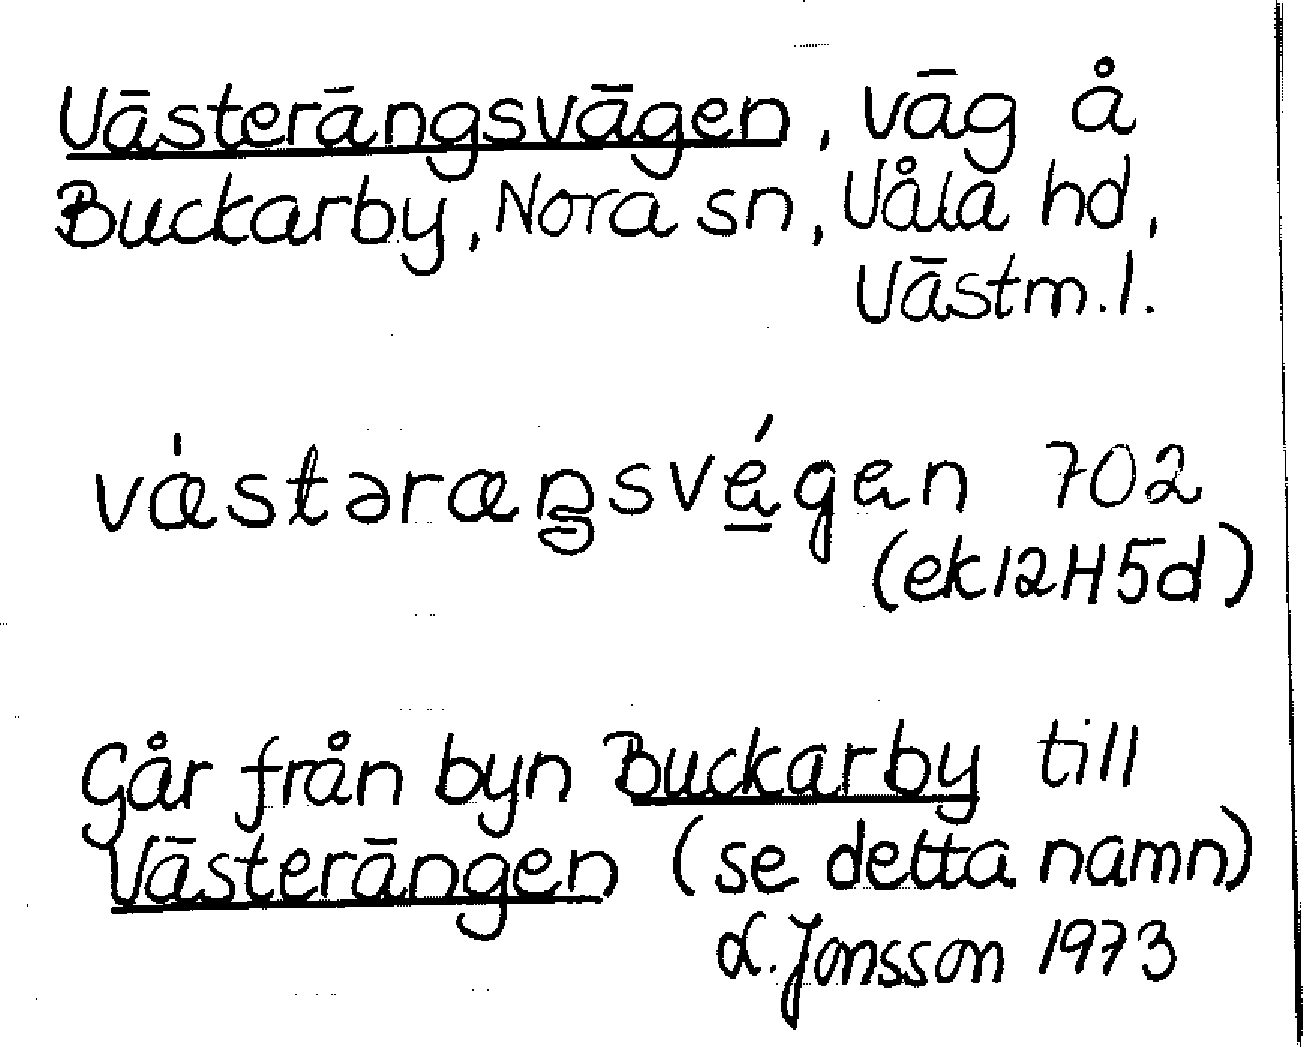 Västerängsvägen, väg å
Buckarby, Nora sn, Våla hd,
Västm. l.
vǽstəræŋsvé̱gən 702
(ek12H5d)
Går från byn Buckarby till
Västerängen (se detta namn)
L. Jonsson 1973